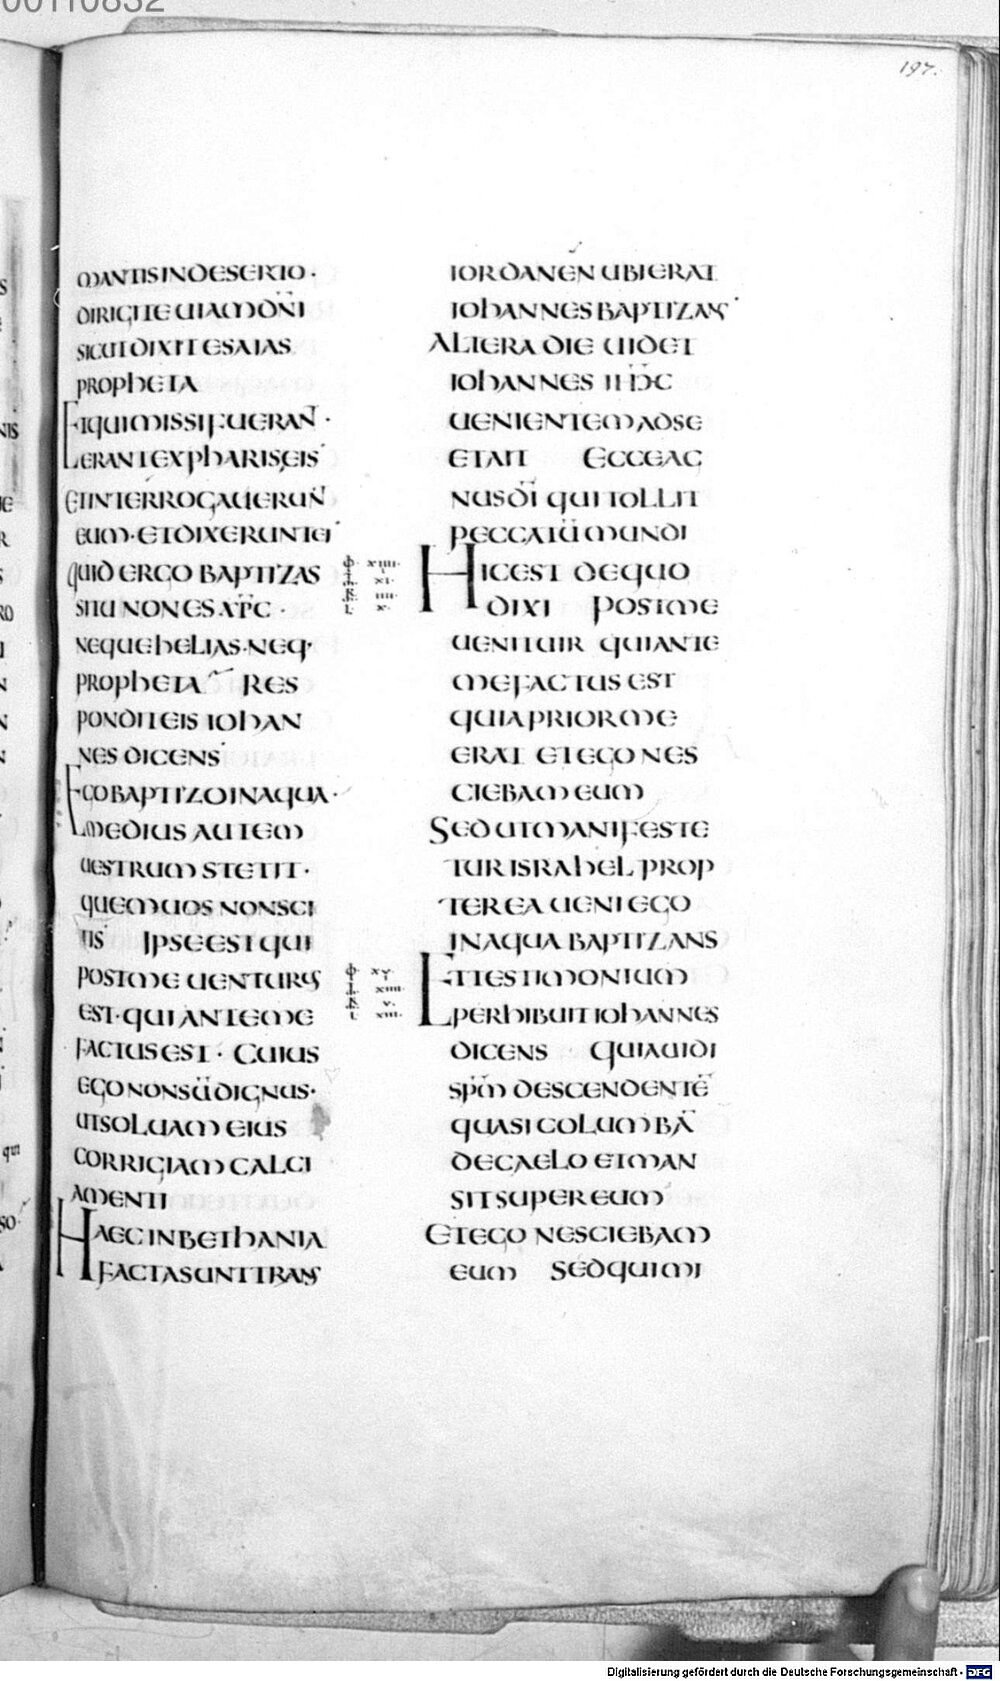 00110832
197.
MANTISINDESERTO ·
DIRIGITE UIAMDÑI
SICUTDIXITESAIAS
PROPHETA
ETQUIMISSIFUERAN̄ ·
ERANTEXPHARISEIS
ETINTERROGAUERUN̄
EUM · ETDIXERUNTEI
QUID ERGO BAPTIZAS
SITU NONESXP̄C ·
NEQUEHELIAS · NEQ·
PROPHETA RES
PONDITEIS IOHAN
NES DICENS
EGOBAPTIZOINAQUA ·
MEDIUS AUTEM
UESTRUM STETIT ·
QUEMUOS NONSCI
TIS IPSEESTQUI
POSTME UENTURUS
EST · QUIANTEME
FACTUSEST · CUIUS
EGONONSŪDIGNUS ·
UTSOLUAM EIUS
CORRIGIAMCALCI
AMENTI
HAECINBETHANIA
FACTASUNTTRANS
ф XIIII·
XI·
IIII·
L X·
ф XV
XIIII·
V·
L XIII·
IORDANEN UBIERAT
IOHANNESBAPTIZANS
ALTERA DIE UIDET
IOHANNES IHC̄
UENIENTEMADSE
ETAIT ECCEAG
NUSDĪ QUI TOLLIT
PECCATŪMUNDI
HICEST DEQUO
DIXI POSTME
UENITUIR QUIANTE
MEFACTUS EST
QUIAPRIORME
ERAT ETEGONES
CIEBAMEUM
SEDUTMANIFESTE
TUR ISRAHEL PROP
TEREA UENIEGO
INAQUA BAPTIZANS
ETTESTIMONIUM
PERHIBUITIOHANNES
DICENS QUIAUIDI
SPM̄ DESCENDENTĒ
QUASICOLUMBĀ
DECAELO ETMAN
SITSUPEREUM
ETEGO NESCIEBAM
EUM SEDQUIMI
Digitalisierung gefördert durch die Deutsche Forschungsgemeinschaft - DFG